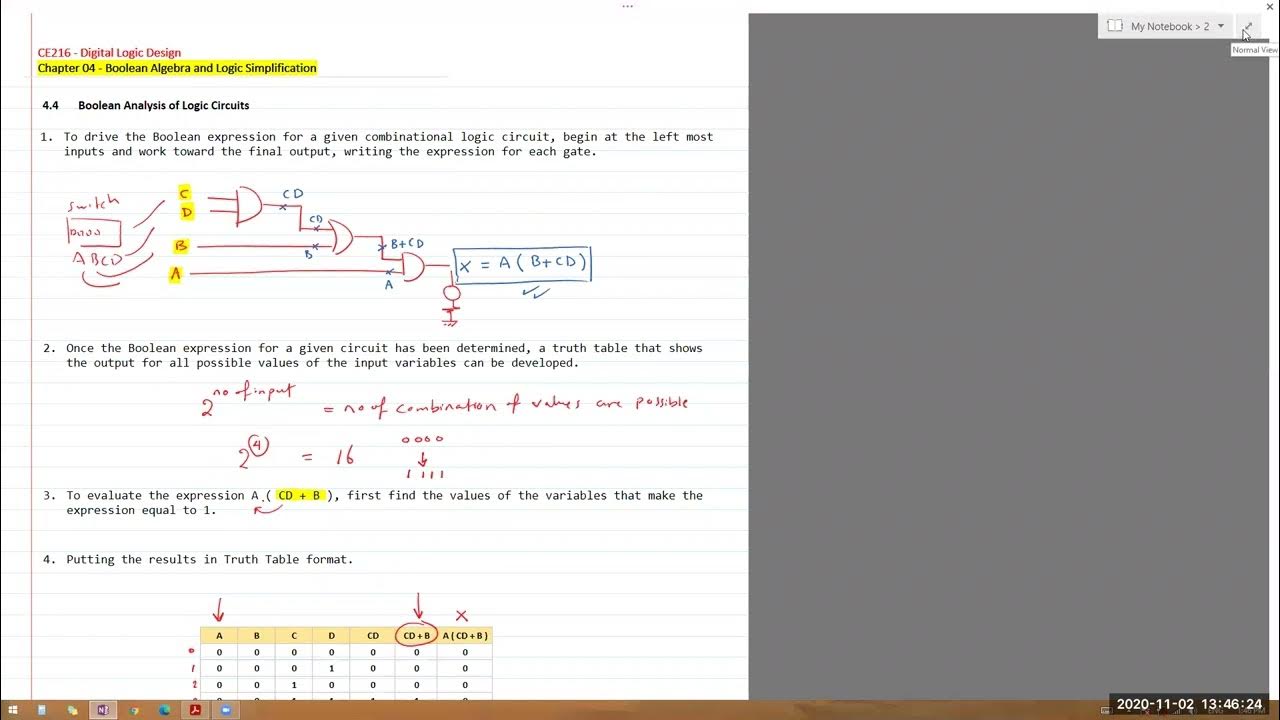 ...
My Notebook > 2
Normal View
CE216 - Digital Logic Design
Chapter 04 - Boolean Algebra and Logic Simplification
4.4 Boolean Analysis of Logic Circuits
1. To drive the Boolean expression for a given combinational logic circuit, begin at the left most
inputs and work toward the final output, writing the expression for each gate.
switch
ABCD
C
D
B
A
CD
CD
B
B+CD
A
X = A ( B+CD )
2. Once the Boolean expression for a given circuit has been determined, a truth table that shows
the output for all possible values of the input variables can be developed.
2 no of input = no of combination of values are possible
2 4 = 16
0000
1111
3. To evaluate the expression A.( CD + B ), first find the values of the variables that make the
expression equal to 1.
4. Putting the results in Truth Table format.
X
A B C D CD CD + B A ( CD + B )
0 0 0 0 0 0 0 0
1 0 0 0 1 0 0 0
2 0 0 1 0 0 0 0
2020-11-02 13:46:24